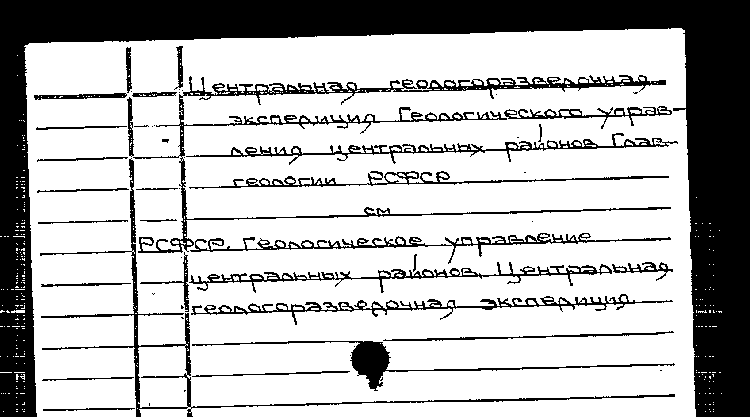 Центральная геологоразведочная
экспедиция Геологического управ-
ления центральных районов Глав-
геологии РСФСР
см
РСФСР. Геологическое управление
центральных районов. Центральная
геологоразведочная экспедиция